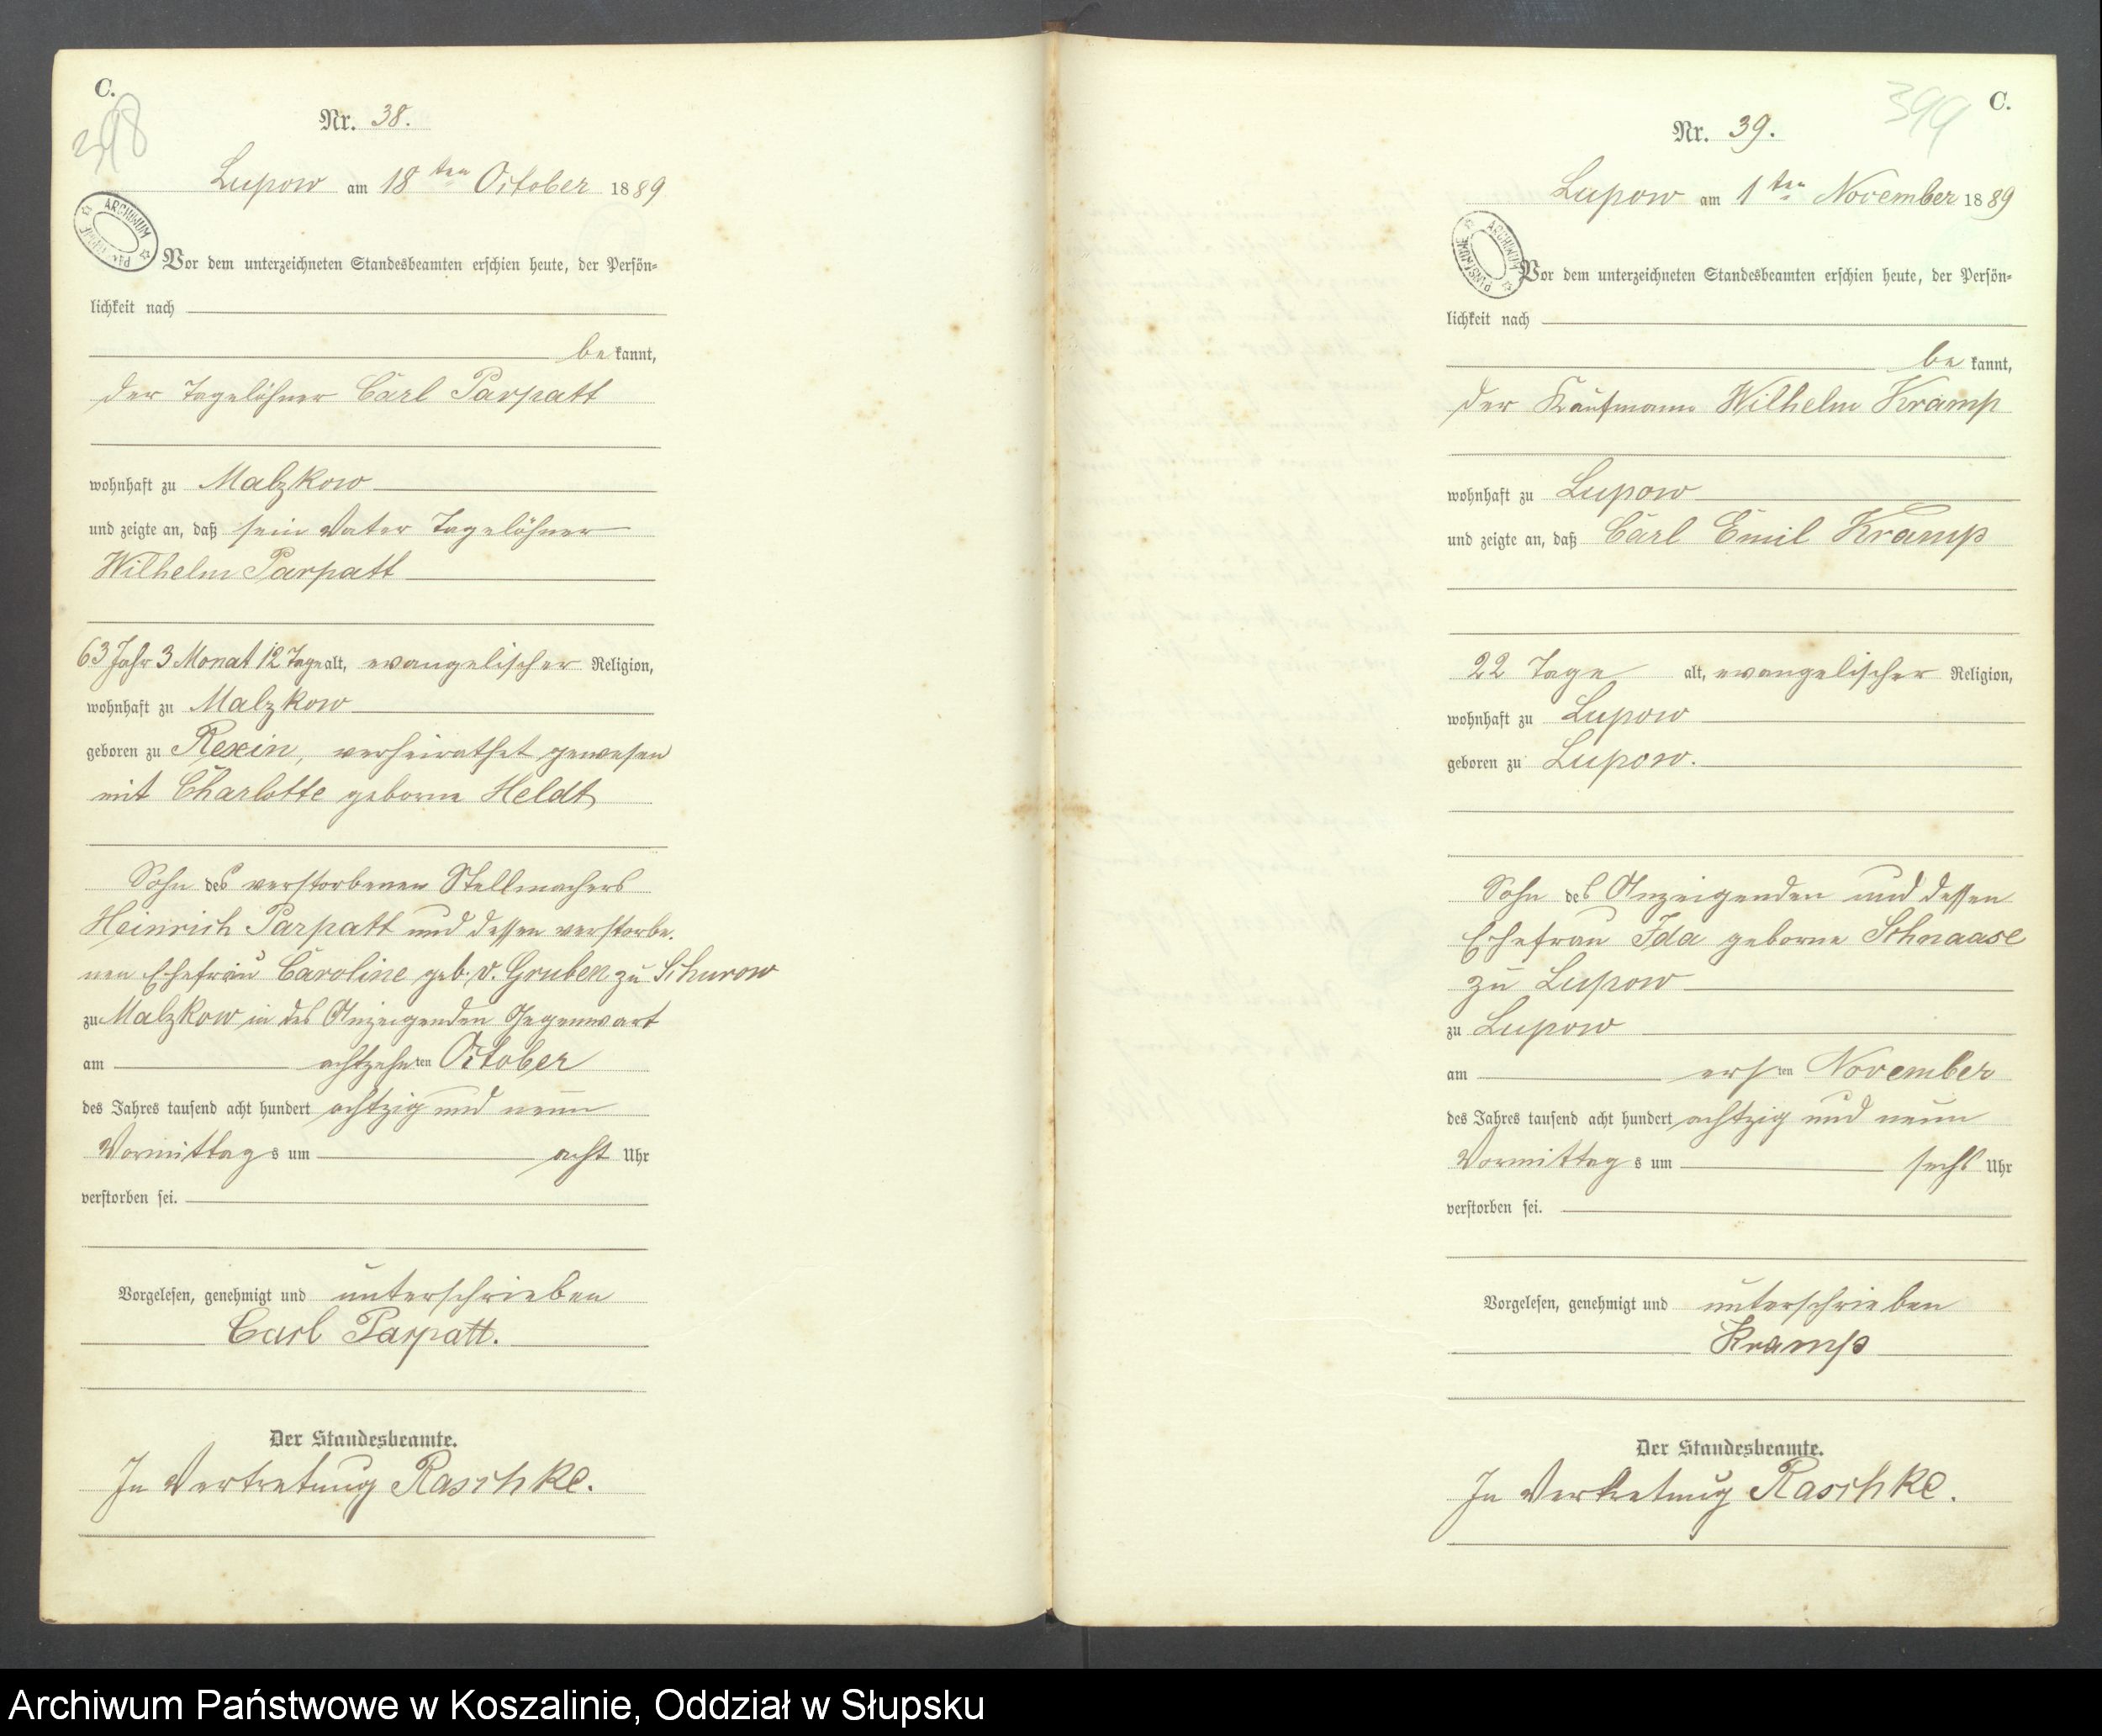 C.
398
Nr. 38.
Lupow am 18ten October 1889
ARCHIWUM
Vor dem unterzeichneten Standesbeamten erschien heute, der Persön-
lichkeit nach
be kannt,
der Tagelöhner Carl Parpatt
wohnhaft zu Malzkow
und zeigte an, daß sein Vater Tagelöhner
Wilhelm Parpatt
63 Jahr 3 Monat 12 Tage alt, evangelischer Religion,
wohnhaft zu Malzkow
geboren zu Rexin, verheirathet gewesen
mit Charlotte geborne Heldt
Sohn des verstorbenen Stellmachers
Heinrich Parpatt und dessen verstorbe-
nen Ehefrau Caroline geb. v. Gruben zu Schurow
zu Malzkow in des Anzeigenden Gegenwart
am achtzehnten October
des Jahres tausend acht hundert achtzig und neun
Vormittags um acht Uhr
verstorben sei.
Vorgelesen, genehmigt und unterschrieben
Carl Parpatt.
Der Standesbeamte.
In Vertretung Raschke.
C.
399
Nr. 39.
Lupow am 1ten November 1889
ARCHIWUM PAŃSTWOWE
Vor dem unterzeichneten Standesbeamten erschien heute, der Persön-
lichkeit nach
be kannt,
der Kaufmann Wilhelm Kramp
wohnhaft zu Lupow
und zeigte an, daß Carl Emil Kramp
22 Tage alt, evangelischer Religion,
wohnhaft zu Lupow
geboren zu Lupow.
Sohn des Anzeigenden und dessen
Ehefrau Ida geborne Schnaase
zu Lupow
zu Lupow
am ersten November
des Jahres tausend acht hundert achtzig und neun
Vormittags um sechs Uhr
verstorben sei.
Vorgelesen, genehmigt und unterschrieben
Kramp
Der Standesbeamte.
In Vertretung Raschke.
Archiwum Państwowe w Koszalinie, Oddział w Słupsku